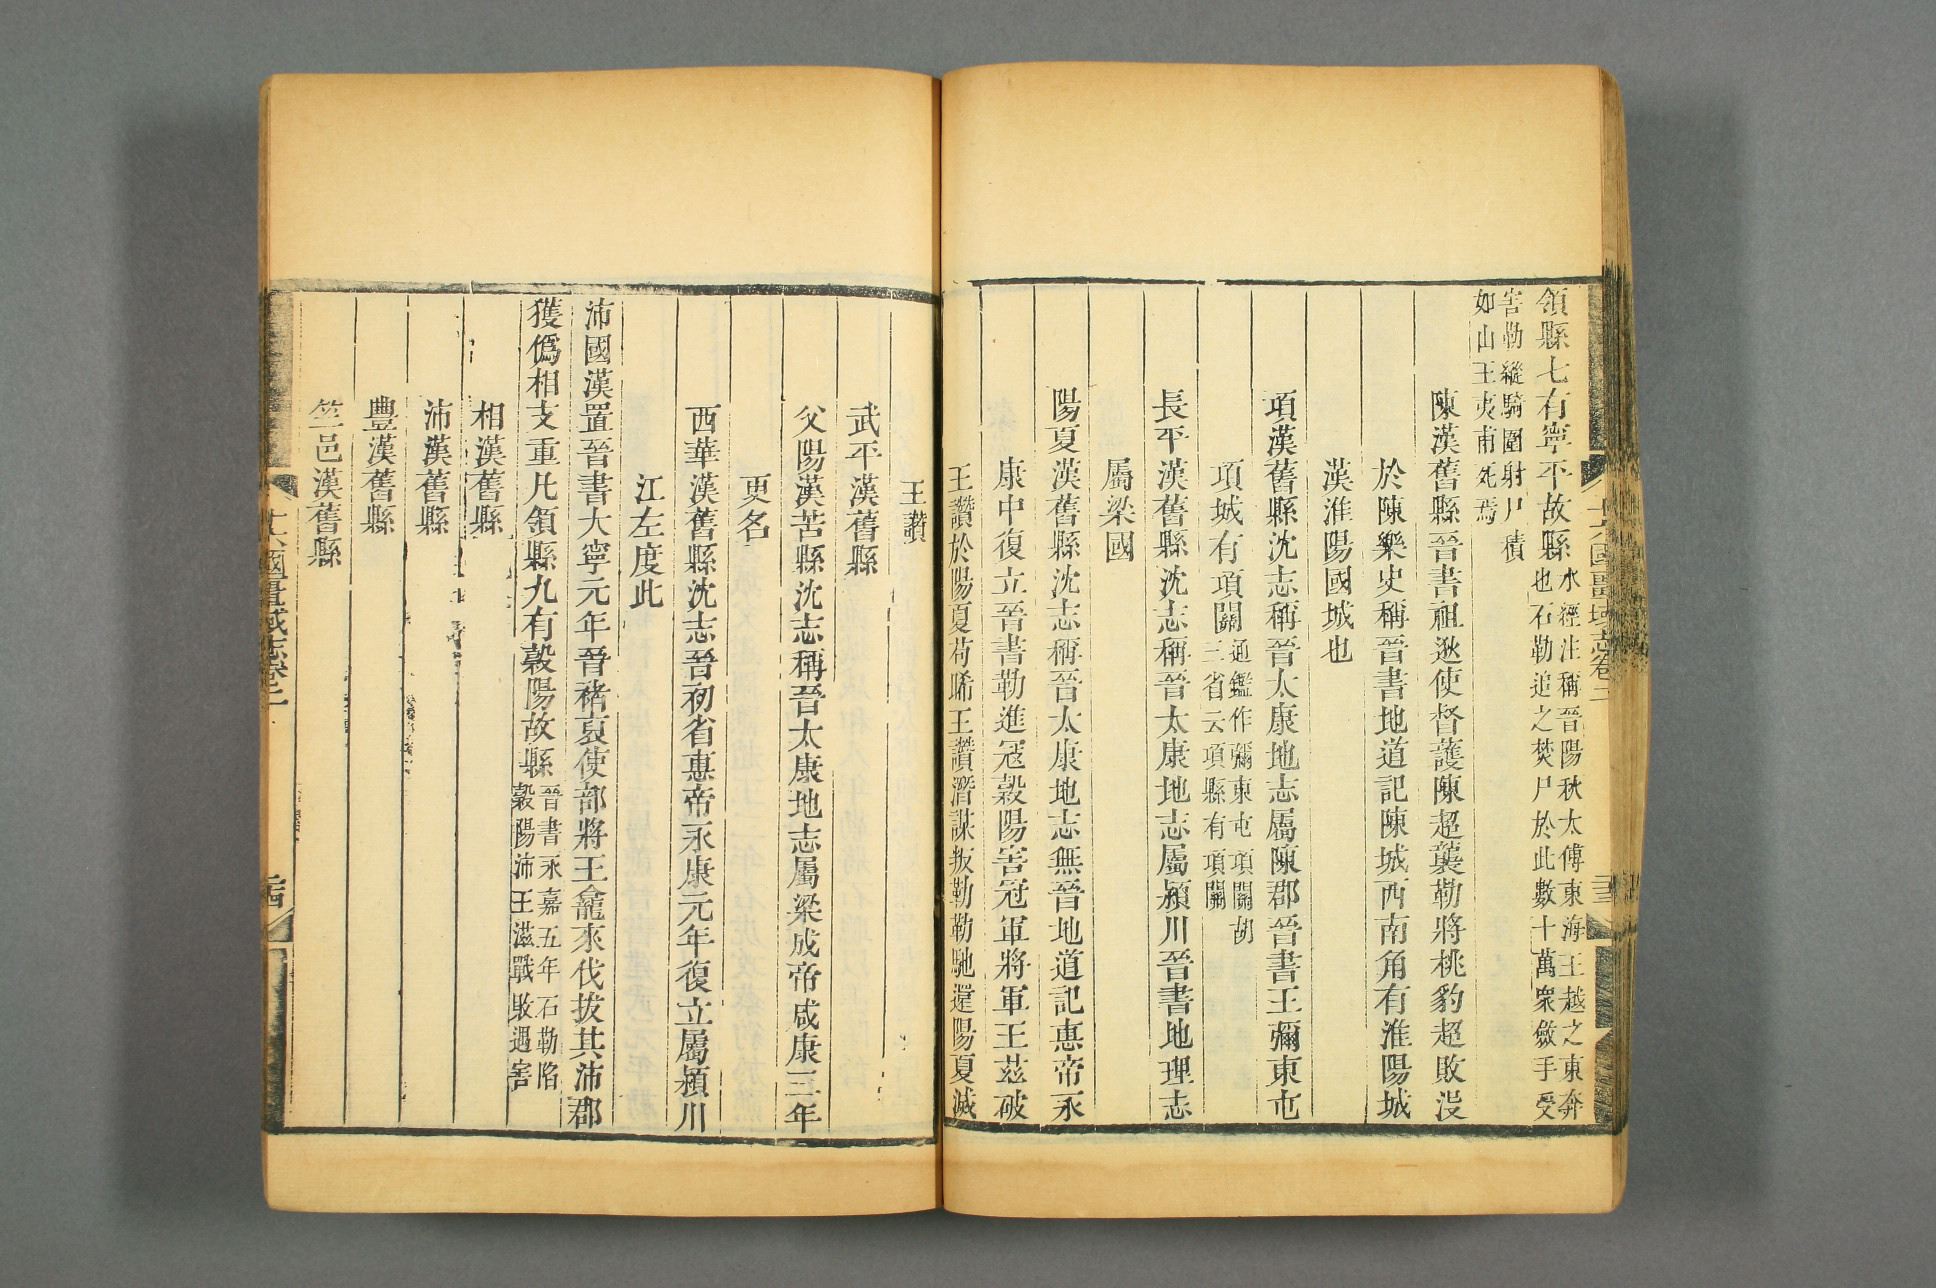 領縣七有寧平故縣水經注稱晉陽秋太傅東海王越之東奔
也石勒追之焚尸於此數十萬衆斂手受
害勒縱騎圍射尸積
如山王夷甫死焉
陳漢舊縣晉書祖逖使督護陳超襲勒將桃豹超敗没
於陳樂史稱晉書地道記陳城西南角有淮陽城
漢淮陽國城也
項漢舊縣沈志稱晉太康地志屬陳郡晉書王彌東屯
項城有項關通鑑作彌東屯項關胡
三省云項縣有項關
長平漢舊縣沈志稱晉太康地志屬潁川晉書地理志
屬梁國
陽夏漢舊縣沈志稱晉太康地志無晉地道記惠帝永
康中復立晉書勒進寇穀陽害冠軍將軍王茲破
王讚於陽夏苟晞王讚潛謀叛勒勒馳還陽夏滅
十六國疆域志卷二
王讚
武平漢舊縣
父陽漢苦縣沈志稱晉太康地志屬梁成帝咸康三年
更名
西華漢舊縣沈志晉初省惠帝永康元年復立屬潁川
江左度此
沛國漢置晉書大寧元年晉褚裒使部將王龕來伐拔其沛郡
獲僞相支重凡領縣九有穀陽故縣晉書永嘉五年石勒陷
穀陽沛王滋戰敗遇害
相漢舊縣
沛漢舊縣
豐漢舊縣
竺邑漢舊縣
十六國疆域志卷二